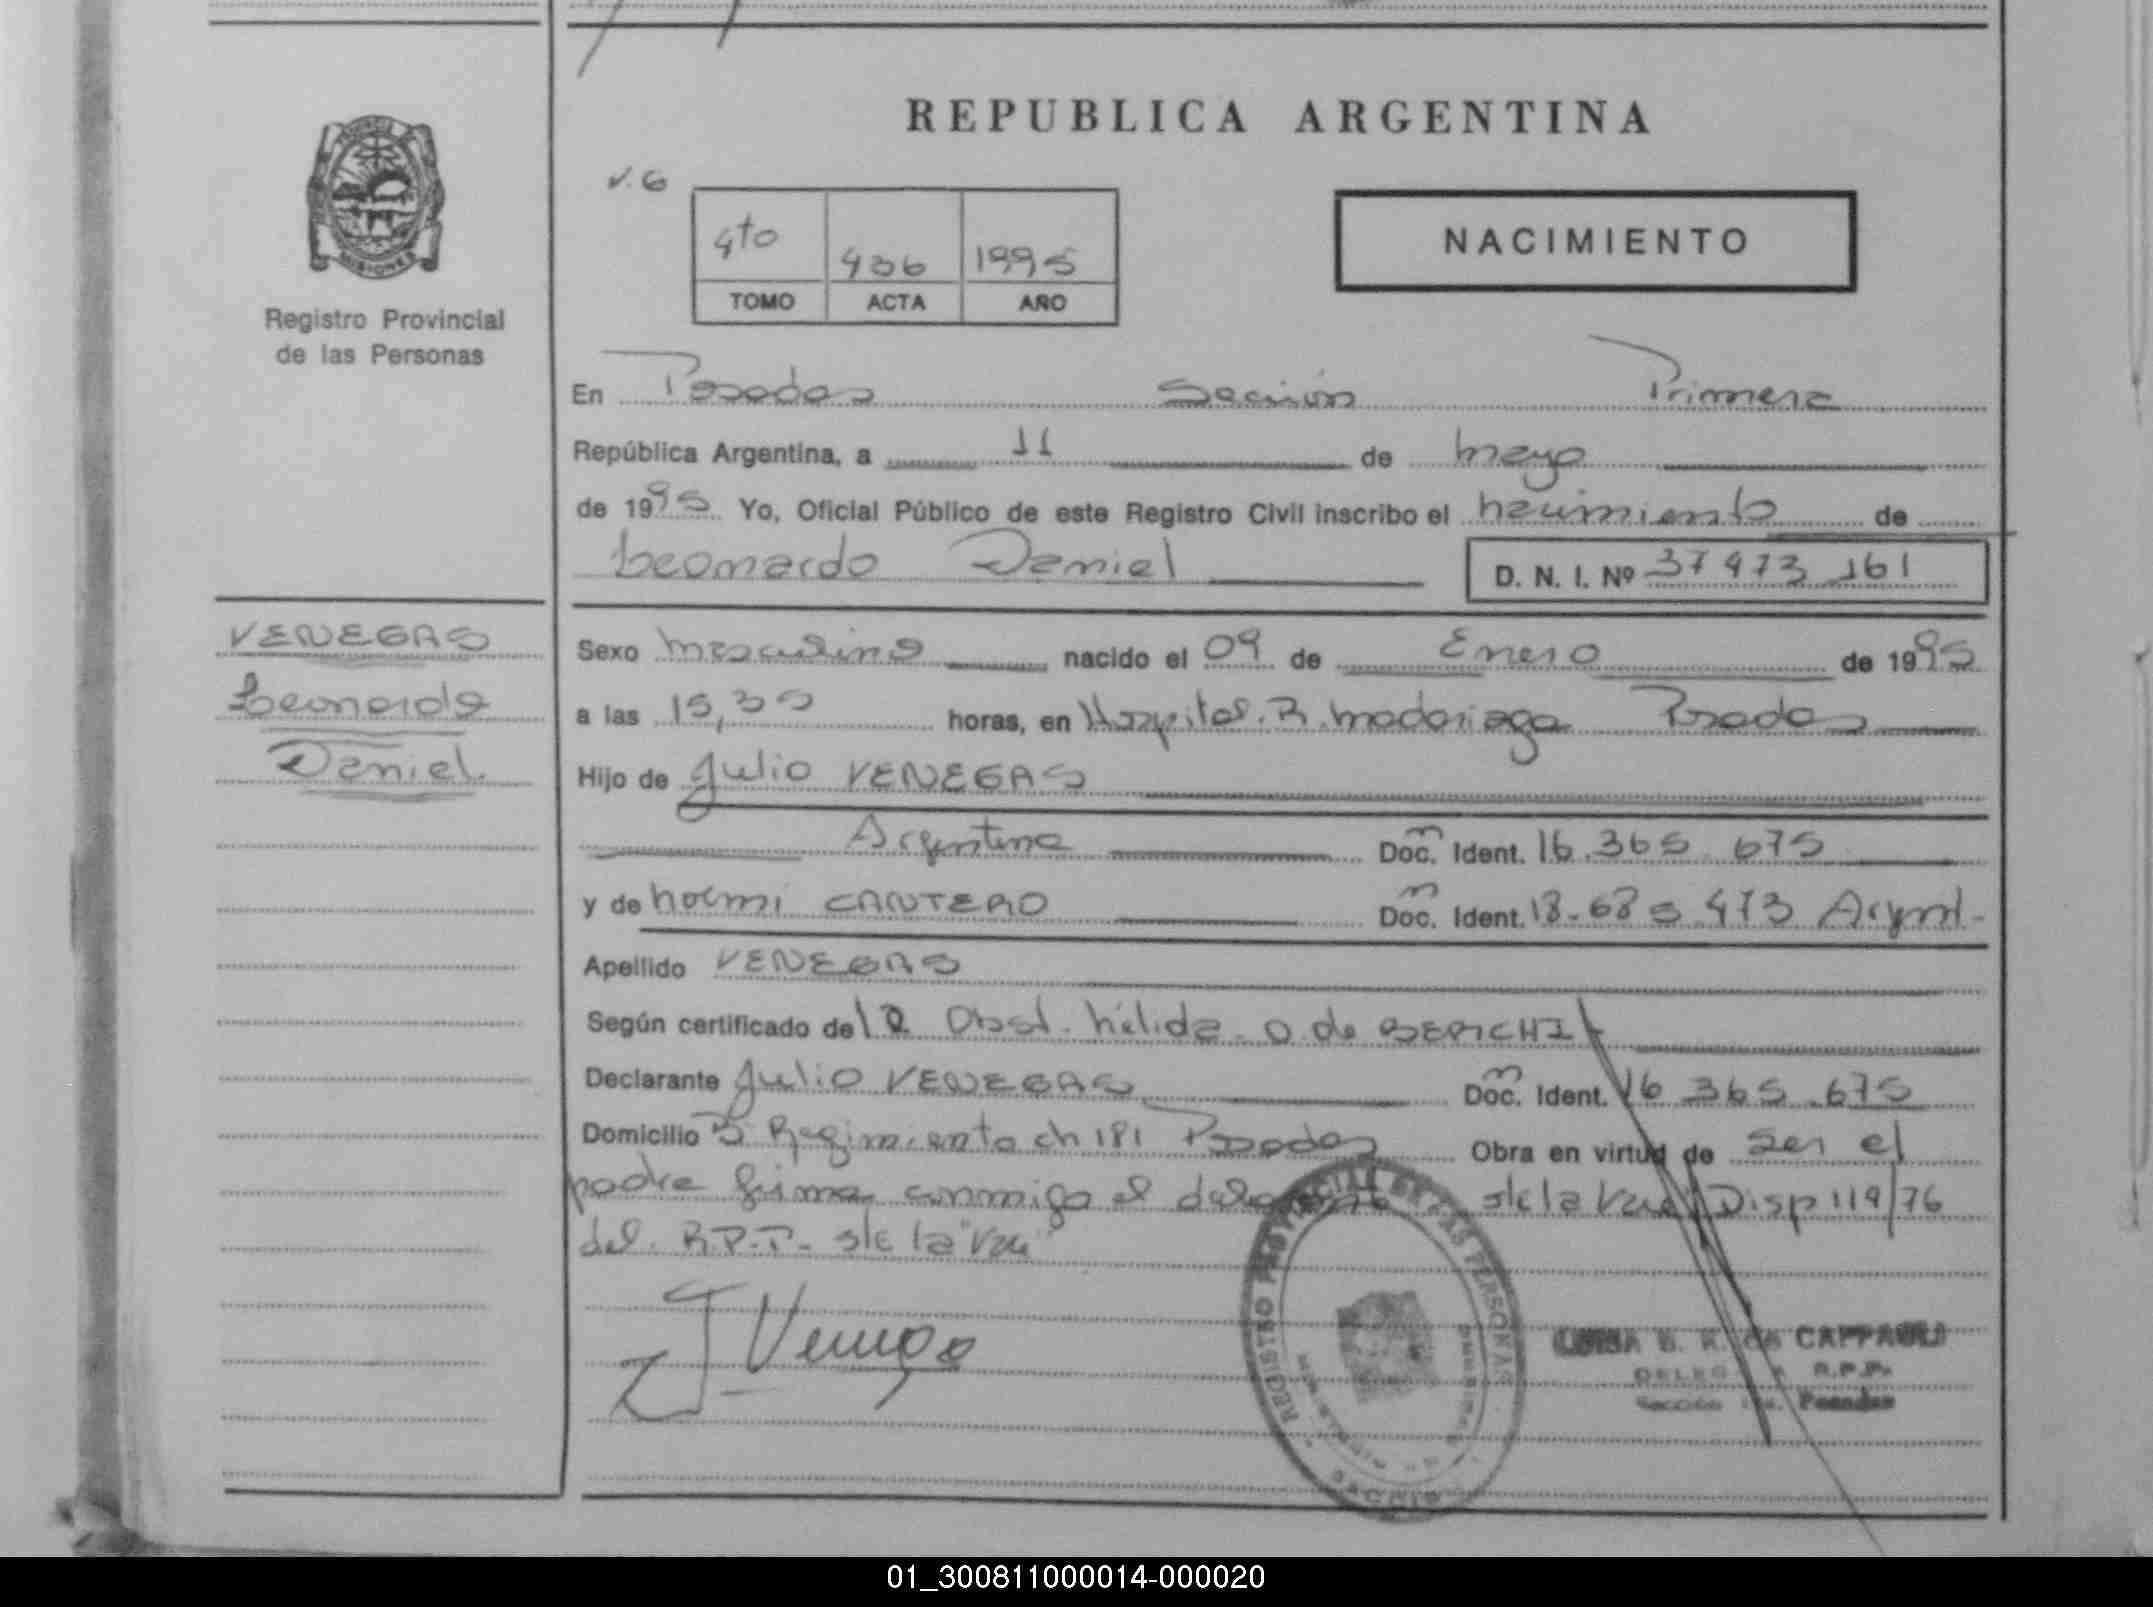 REPUBLICA ARGENTINA
v. 6
4to 436 1995
TOMO ACTA AÑO
NACIMIENTO
MISIONES
Registro Provincial
de las Personas
En Posadas Sección Primera
República Argentina, a 11 de mayo
de 1995 Yo, Oficial Público de este Registro Civil inscribo el nacimiento de
Leonardo Daniel D. N. I. Nº 37 473 161
VENEGAS
Leonardo
Daniel.
Sexo masculino nacido el 09 de Enero de 1995
a las 15,35 horas, en Hospital. R. madariaga Posadas
Hijo de Julio VENEGAS
Argentina Doc. Ident. 16.365.675
y de noemi CANTERO Doc. Ident. 18.685 473 Argent.
Apellido VENEGAS
Según certificado de la Obst. nélida O. de BERICHI
Declarante Julio VENEGAS Doc. Ident. 16 365.675
Domicilio Regimiento ch 181 Posadas Obra en virtud de ser el
padre firma conmigo el s/e la Disp 119/76
del. R.P.P. s/e la
J Venega
REGISTRO PROVINCIAL DE LAS PERSONAS
MISIONES
CAPPAULI
R.P.P.
Sección 1ra. Posadas
01_300811000014-000020